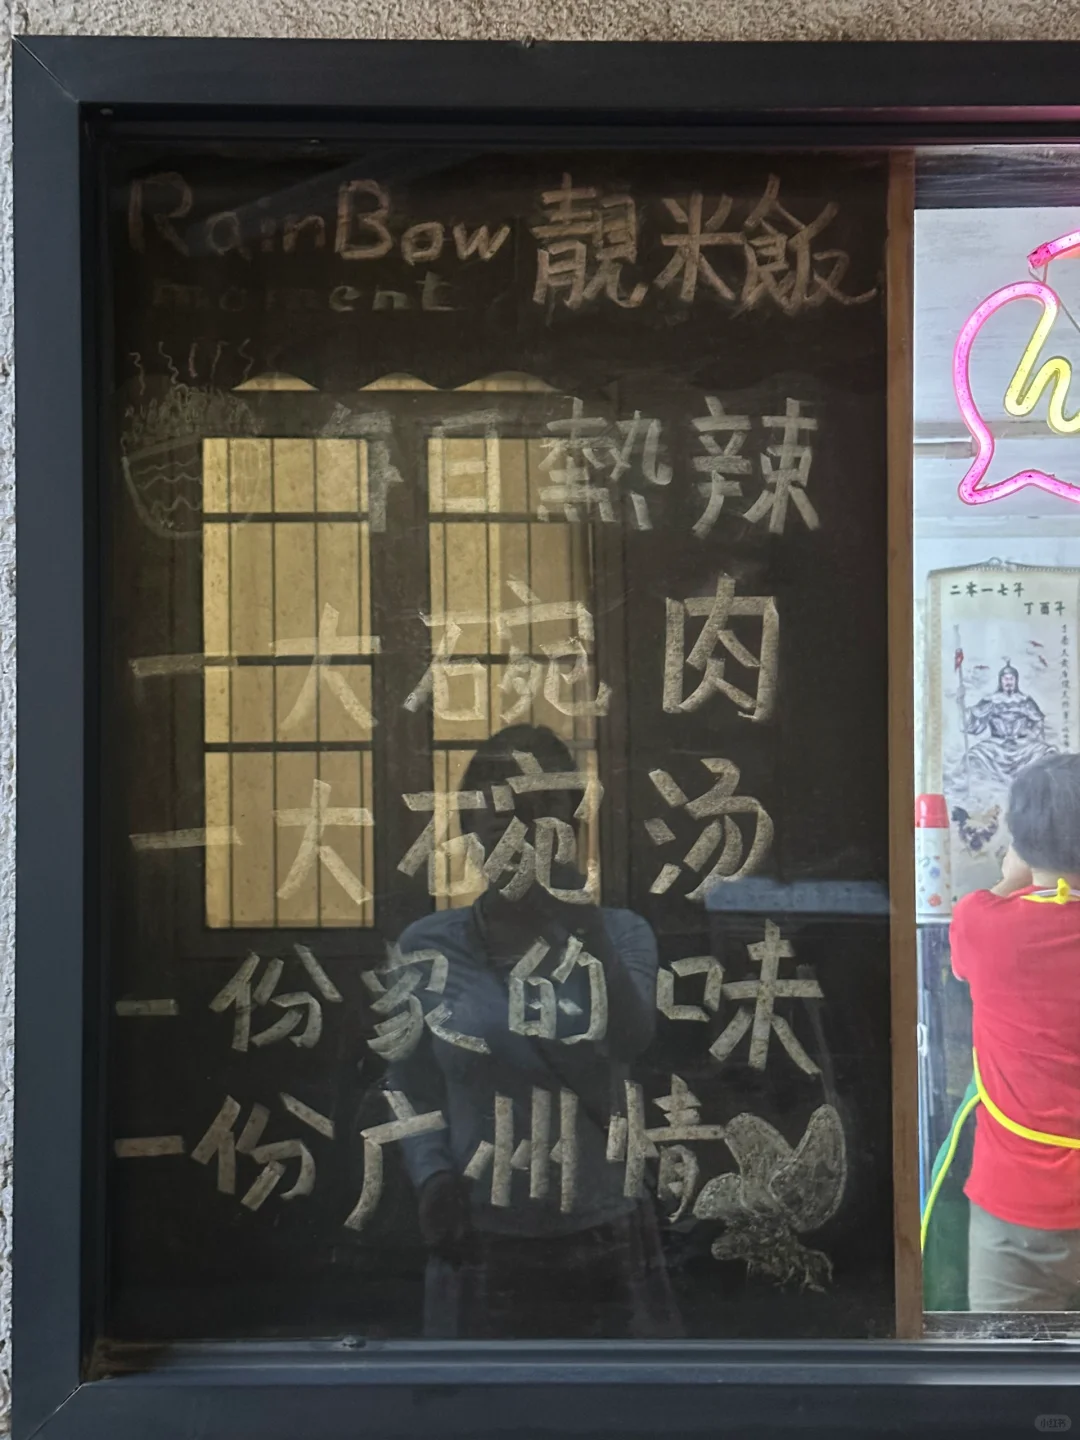 RainBow 靚米飯
moment
每日熱辣
一大碗肉
一大碗汤
一份家的味
一份广州情
二零一七年
丁酉年
小红书